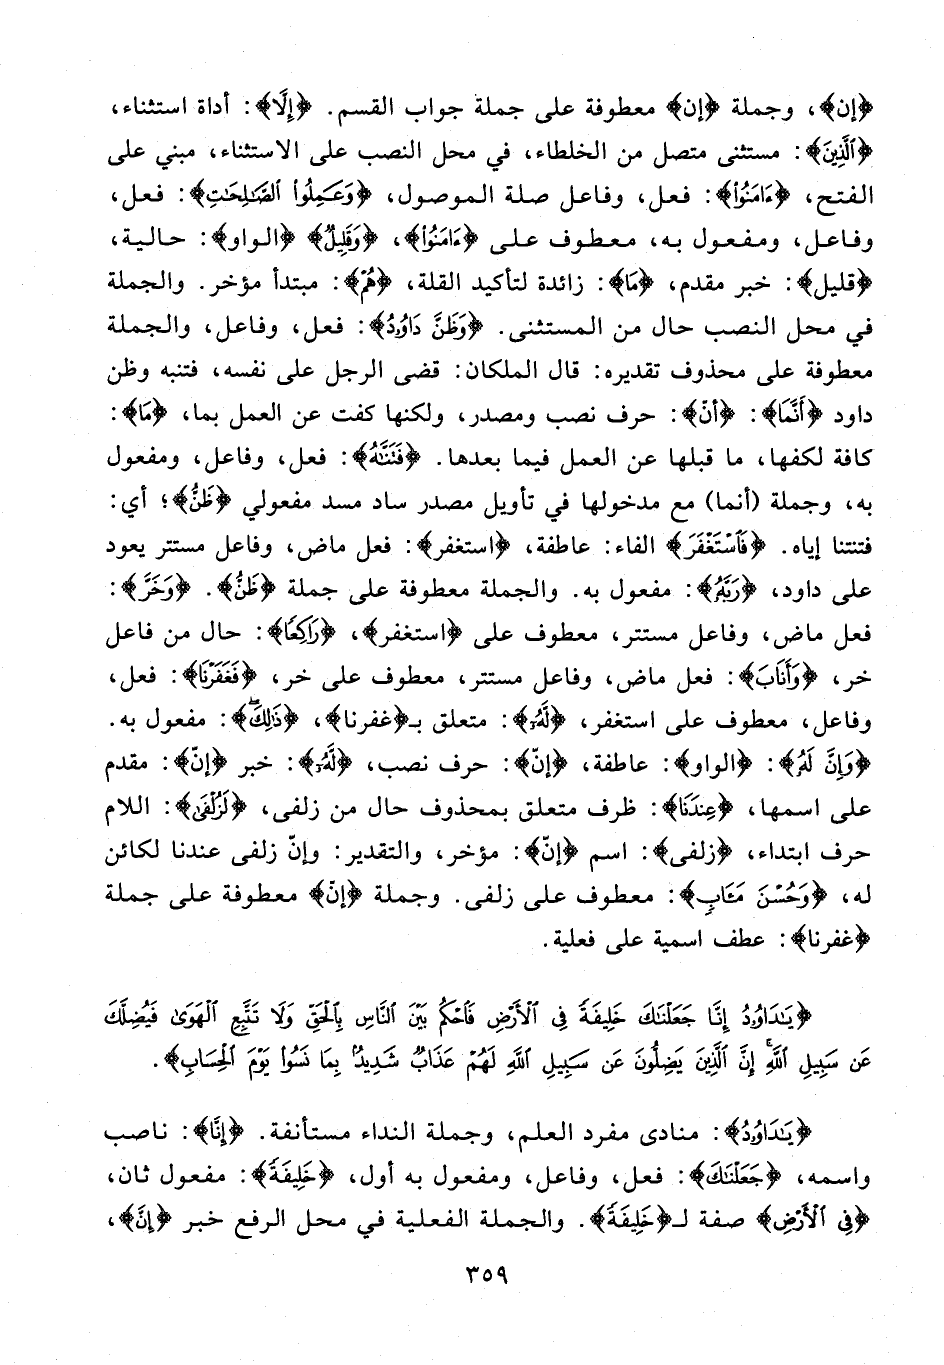 ﴿إن﴾، وجملة ﴿إن﴾ معطوفة على جملة جواب القسم. ﴿إِلَّا﴾: أداة استثناء،
﴿ٱلَّذِينَ﴾: مستثنى متصل من الخلطاء، في محل النصب على الاستثناء، مبني على
الفتح، ﴿ءَامَنُوا۟﴾: فعل، وفاعل صلة الموصول، ﴿وَعَمِلُوا۟ ٱلصَّٰلِحَٰتِ﴾: فعل،
وفاعل، ومفعول به، معطوف على ﴿ءَامَنُوا۟﴾، ﴿وَقَلِيلٌ﴾ ﴿الواو﴾: حالية،
﴿قليل﴾: خبر مقدم، ﴿مَا﴾: زائدة لتأكيد القلة، ﴿هُمْ﴾: مبتدأ مؤخر. والجملة
في محل النصب حال من المستثنى. ﴿وَظَنَّ دَاوُۥدُ﴾: فعل، وفاعل، والجملة
معطوفة على محذوف تقديره: قال الملكان: قضى الرجل على نفسه، فتنبه وظن
داود ﴿أَنَّمَا﴾: ﴿أنّ﴾: حرف نصب ومصدر، ولكنها كفت عن العمل بما، ﴿مَا﴾:
كافة لكفها، ما قبلها عن العمل فيما بعدها. ﴿فَتَنَّٰهُ﴾: فعل، وفاعل، ومفعول
به، وجملة (أنما) مع مدخولها في تأويل مصدر ساد مسد مفعولي ﴿ظَنَّ﴾؛ أي:
فتنتنا إياه. ﴿فَٱسْتَغْفَرَ﴾ الفاء: عاطفة، ﴿استغفر﴾: فعل ماض، وفاعل مستتر يعود
على داود، ﴿رَبَّهُۥ﴾: مفعول به. والجملة معطوفة على جملة ﴿ظَنَّ﴾. ﴿وَخَرَّ﴾:
فعل ماض، وفاعل مستتر، معطوف على ﴿استغفر﴾، ﴿رَاكِعًا﴾: حال من فاعل
خر، ﴿وَأَنَابَ﴾: فعل ماض، وفاعل مستتر، معطوف على خر، ﴿فَغَفَرْنَا﴾: فعل،
وفاعل، معطوف على استغفر، ﴿لَهُۥ﴾: متعلق بـ﴿غفرنا﴾، ﴿ذَٰلِكَ ۖ﴾: مفعول به.
﴿وَإِنَّ لَهُۥ﴾: ﴿الواو﴾: عاطفة، ﴿إنّ﴾: حرف نصب، ﴿لَهُۥ﴾: خبر ﴿إنّ﴾: مقدم
على اسمها، ﴿عِندَنَا﴾: ظرف متعلق بمحذوف حال من زلفى، ﴿لَزُلْفَىٰ﴾: اللام
حرف ابتداء، ﴿زلفى﴾: اسم ﴿إنّ﴾: مؤخر، والتقدير: وإنّ زلفى عندنا لكائن
له، ﴿وَحُسْنَ مَـَٔابٍ﴾: معطوف على زلفى. وجملة ﴿إنّ﴾ معطوفة على جملة
﴿غفرنا﴾: عطف اسمية على فعلية.
﴿يَٰدَاوُۥدُ إِنَّا جَعَلْنَٰكَ خَلِيفَةً فِى ٱلْأَرْضِ فَٱحْكُم بَيْنَ ٱلنَّاسِ بِٱلْحَقِّ وَلَا تَتَّبِعِ ٱلْهَوَىٰ فَيُضِلَّكَ
عَن سَبِيلِ ٱللَّهِ ۚ إِنَّ ٱلَّذِينَ يَضِلُّونَ عَن سَبِيلِ ٱللَّهِ لَهُمْ عَذَابٌ شَدِيدٌۢ بِمَا نَسُوا۟ يَوْمَ ٱلْحِسَابِ﴾.
﴿يَٰدَاوُۥدُ﴾: منادى مفرد العلم، وجملة النداء مستأنفة. ﴿إِنَّا﴾: ناصب
واسمه، ﴿جَعَلْنَٰكَ﴾: فعل، وفاعل، ومفعول به أول، ﴿خَلِيفَةً﴾: مفعول ثان،
﴿فِى ٱلْأَرْضِ﴾ صفة لـ﴿خَلِيفَةً﴾. والجملة الفعلية في محل الرفع خبر ﴿إِنَّ﴾،
٣٥٩